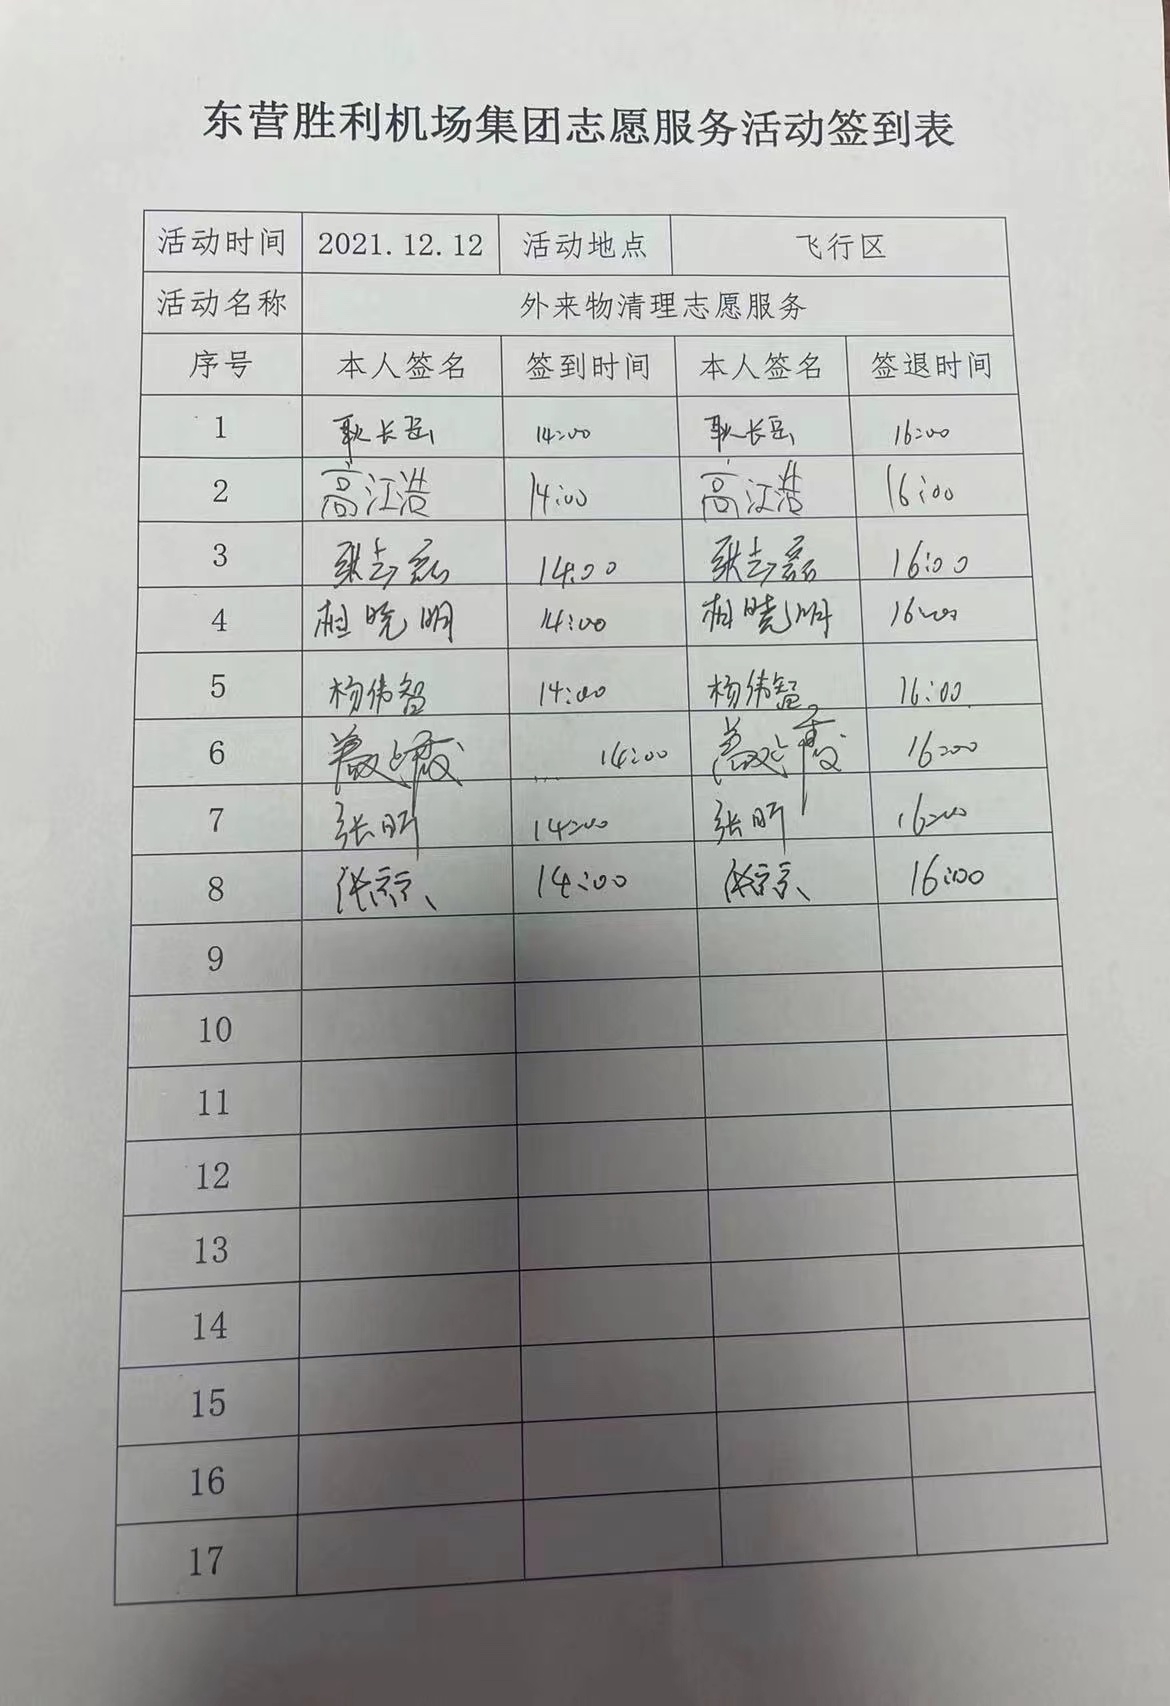 东营胜利机场集团志愿服务活动签到表
活动时间 2021.12.12 活动地点 飞行区
活动名称 外来物清理志愿服务
序号 本人签名 签到时间 本人签名 签退时间
1 耿长岳 14:00 耿长岳 16:00
2 高江浩 14:00 高江浩 16:00
3 张志磊 14:00 张志磊 16:00
4 相晓明 14:00 相晓明 16:00
5 杨伟智 14:00 杨伟智 16:00
6 14:00 16:00
7 张昕 14:00 张昕 16:00
8 张京京 14:00 张京京 16:00
9
10
11
12
13
14
15
16
17